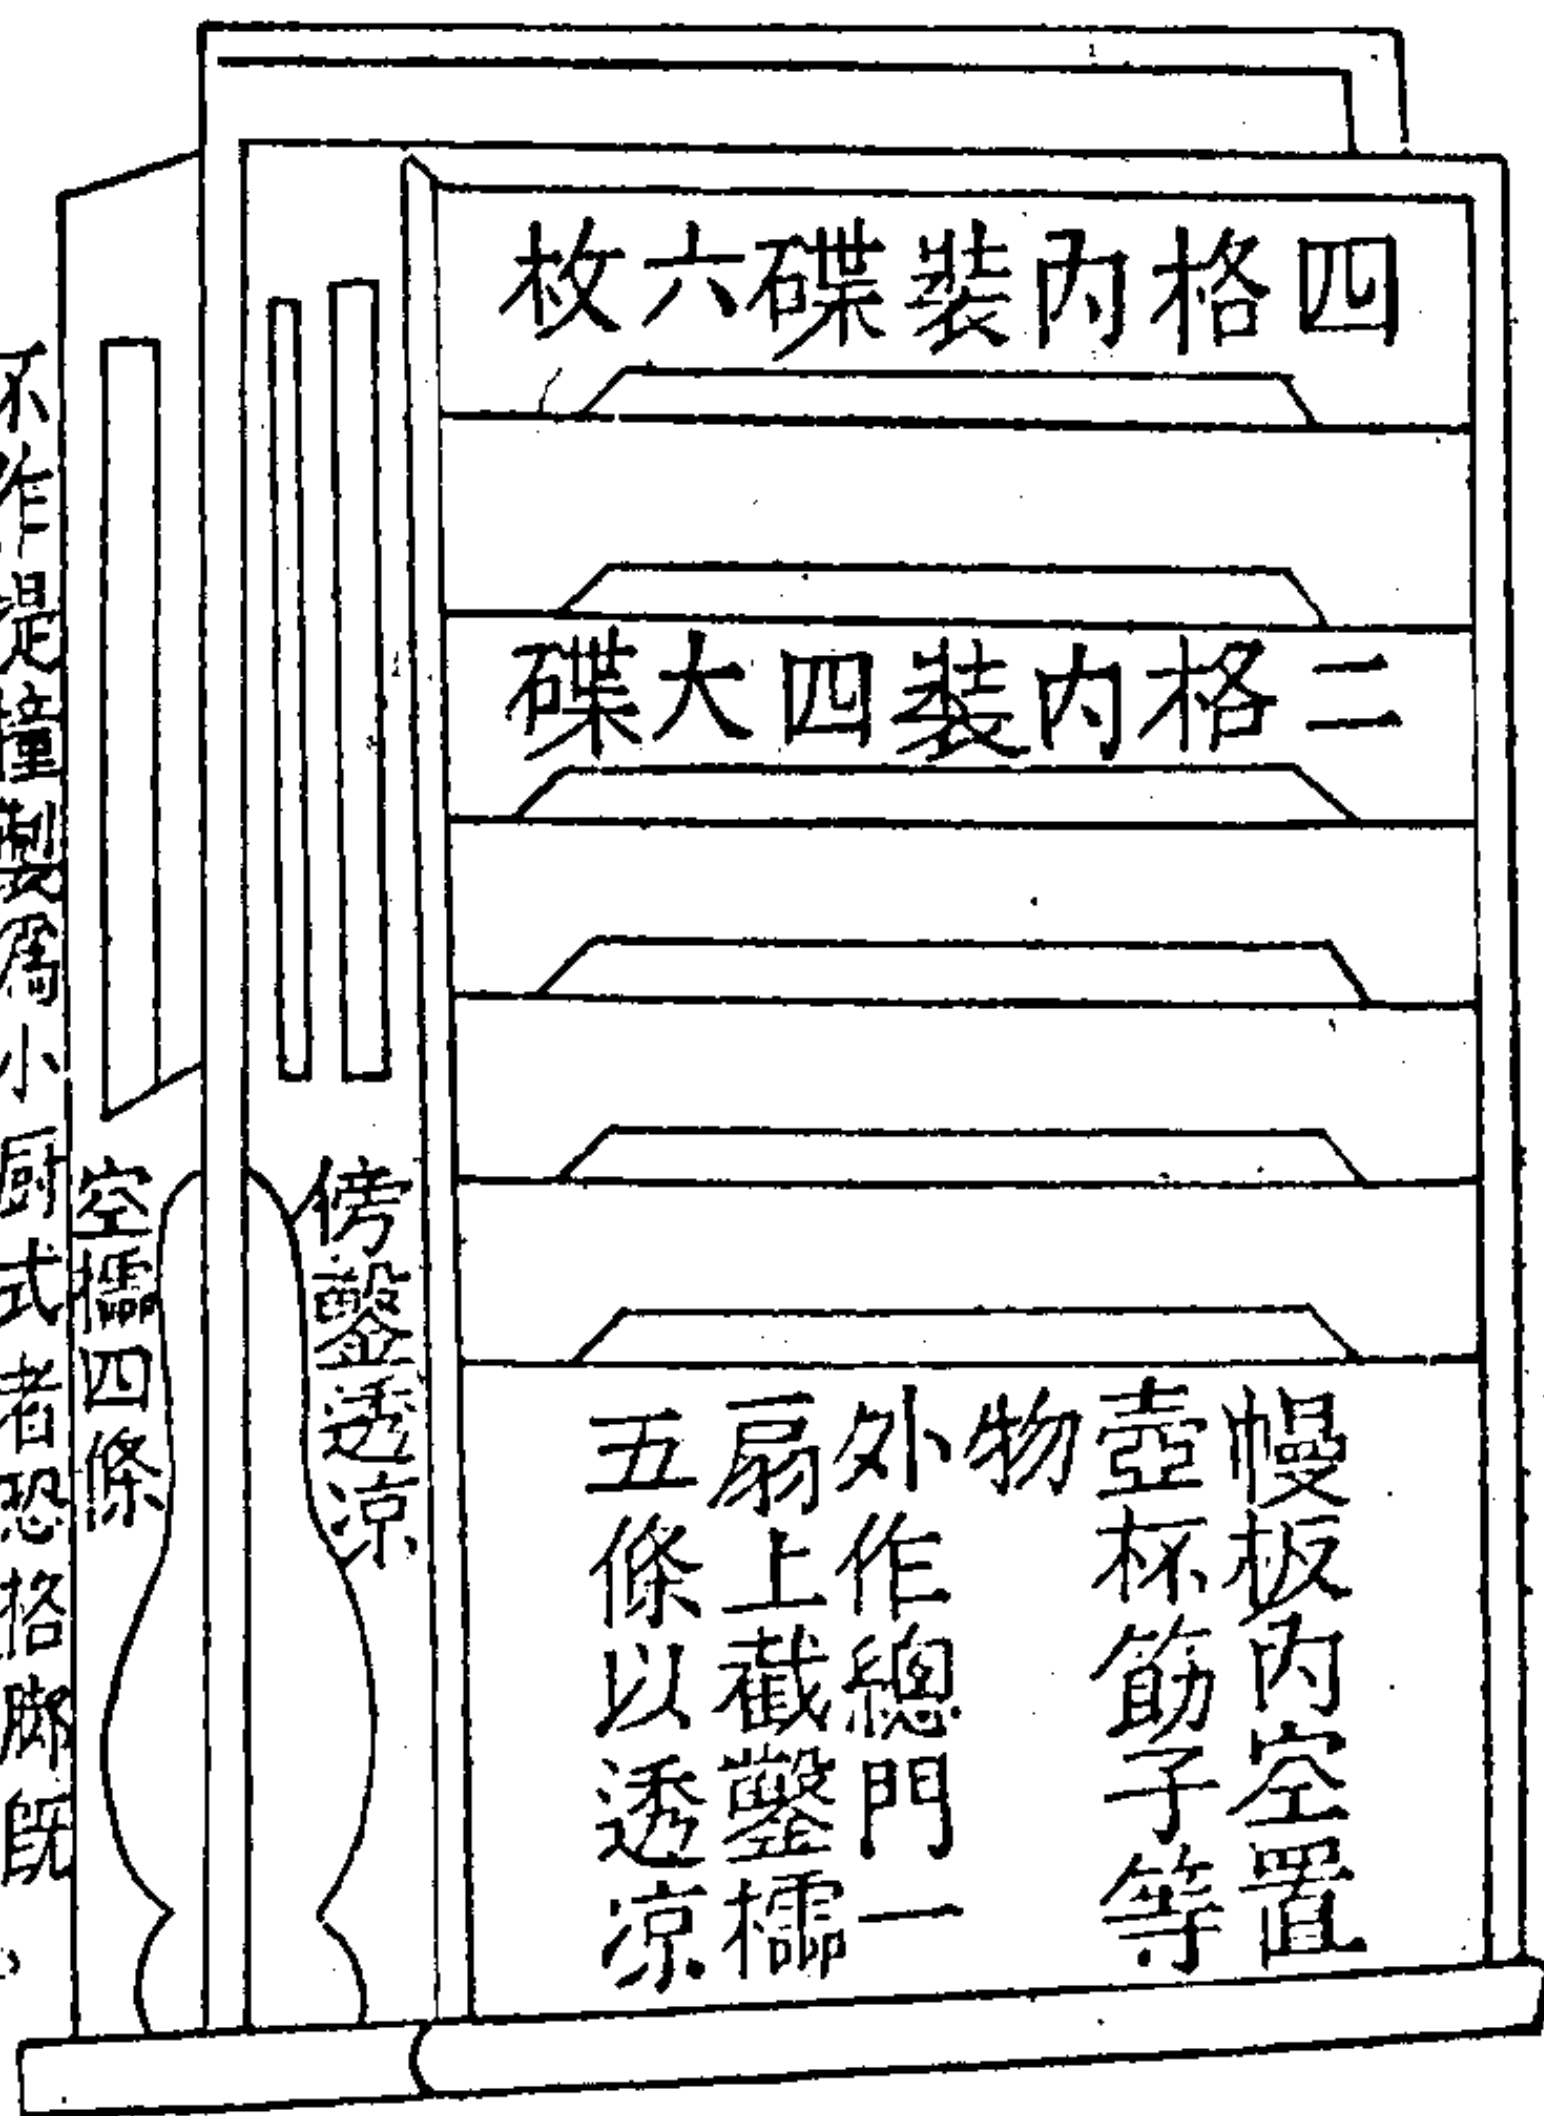 四格內裝碟六枚
二格内裝四大碟
幔板內空置
壺杯筯子等
物
外作總門一
扇上截鑿櫺
五條以透凉
傍鑿透凉
空櫺四條
不作提撞製為小厨式者恐格脚既